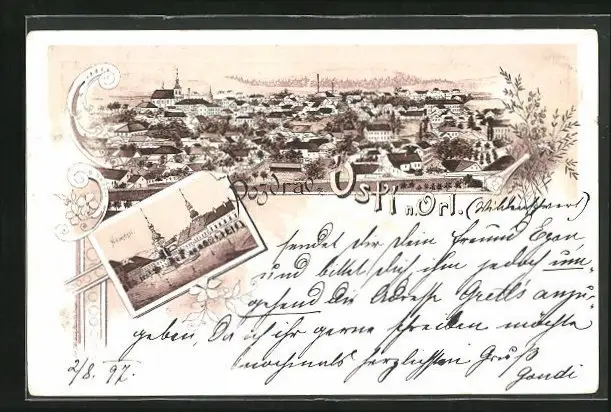 Pozdrav z Ústí n. Orl. (Wildenschwert)
Náměstí.
sendet dir dein Freund Egon
und bittet dich, ihm jedoch um-
gehend die Adresse Gretl's anzu-
geben, da ich ihr gerne schreiben möchte
nochmals herzlichsten Gruß
2/8. 97.